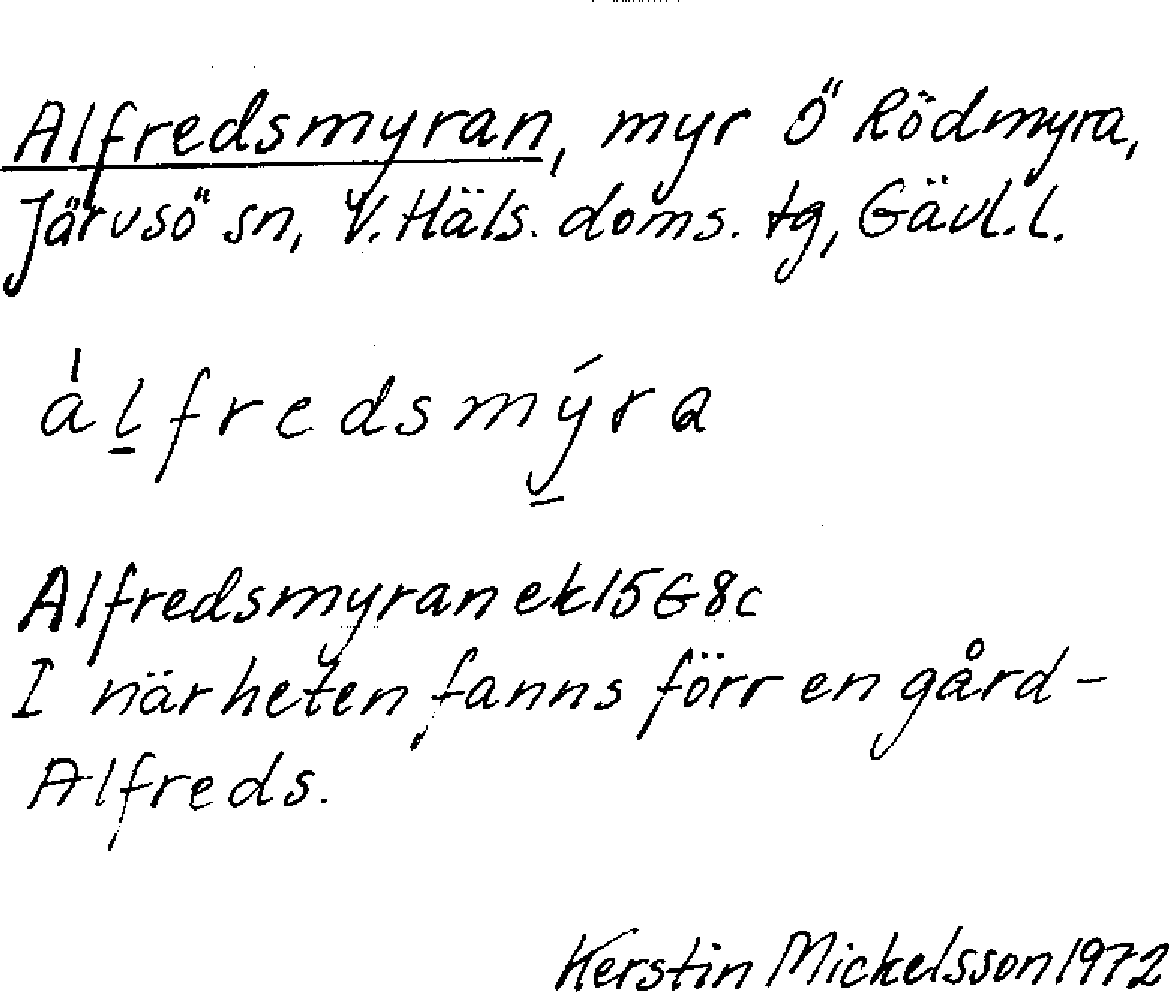 Alfredsmyran, myr Ö Rödmyra,
Järvsö sn, V. Häls. doms. tg, Gävl. l.
a̍l̠fredsmý̠ra
Alfredsmyran ek 15G8c
I närheten fanns förr en gård -
Alfreds.
Kerstin Mickelsson 1972